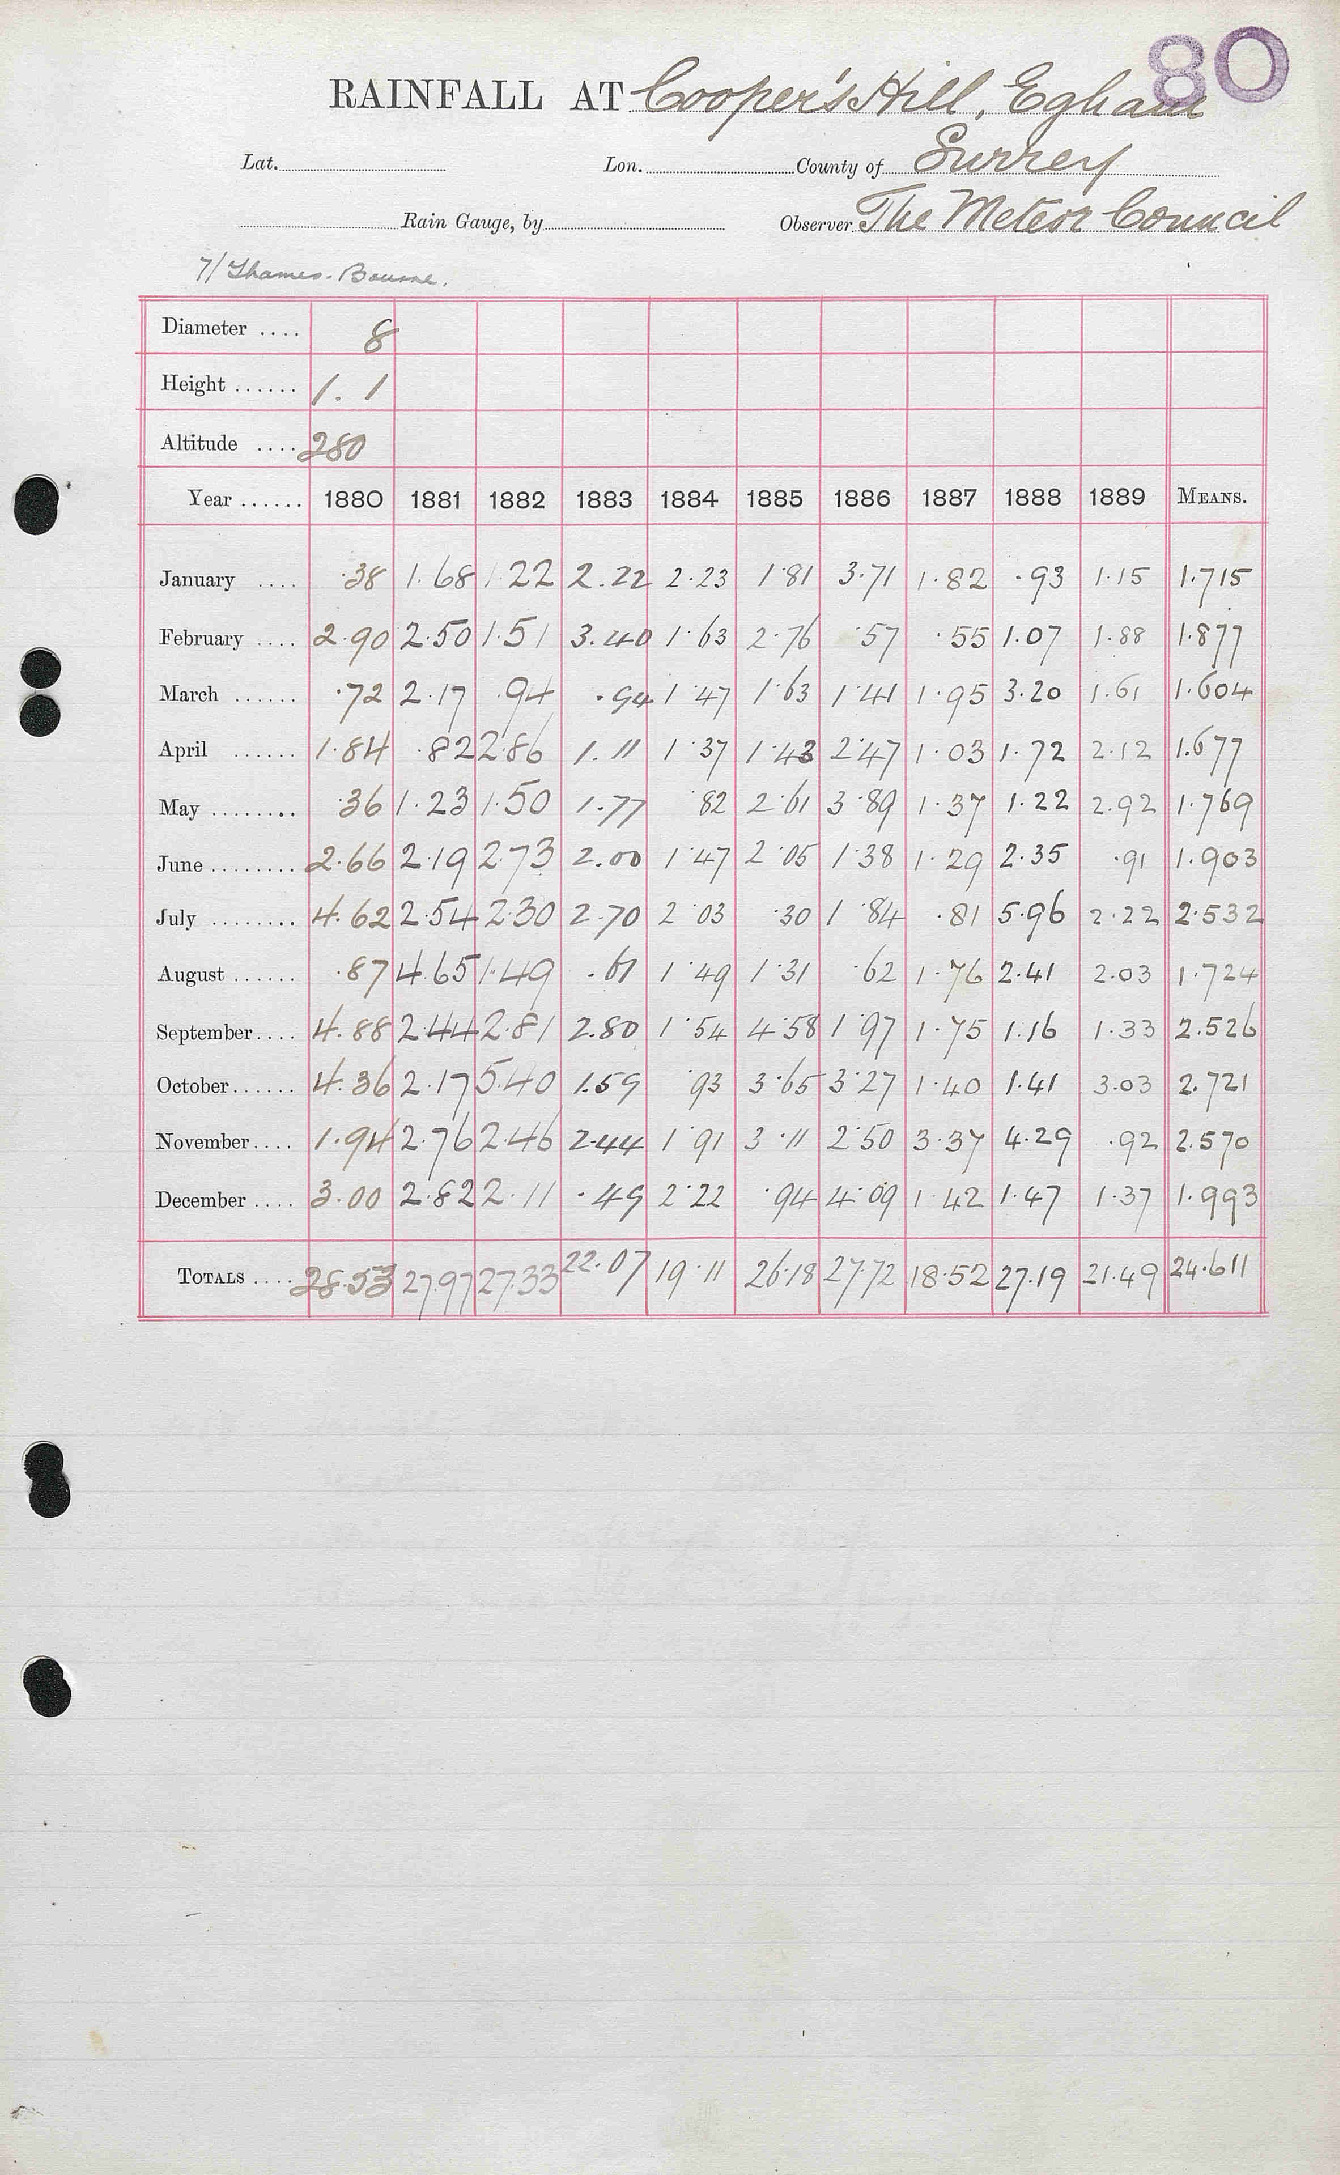 80
RAINFALL AT Cooper's Hill, Egham
Lat. Lon. County of Surrey
Rain Gauge, by Observer The Meteor Council
7/ Thames. Bourne.
Diameter .... 8
Height ...... 1. 1
Altitude .... 280
Year ...... 1880 1881 1882 1883 1884 1885 1886 1887 1888 1889 MEANS.
January .... .38 1.68 1.22 2.22 2.23 1.81 3.71 1.82 .93 1.15 1.715
February .... 2.90 2.50 1.51 3.40 1.63 2.76 .57 .55 1.07 1.88 1.877
March ...... .72 2.17 .94 .94 1.47 1.63 1.41 1.95 3.20 1.61 1.604
April ...... 1.84 .82 2.86 1.11 1.37 1.43 2.47 1.03 1.72 2.12 1.677
May ........ .36 1.23 1.50 1.77 .82 2.61 3.89 1.37 1.22 2.92 1.769
June ........ 2.66 2.19 2.73 2.00 1.47 2.05 1.38 1.29 2.35 .91 1.903
July ........ 4.62 2.54 2.30 2.70 2.03 .30 1.84 .81 5.96 2.22 2.532
August ...... .87 4.65 1.49 .61 1.49 1.31 .62 1.76 2.41 2.03 1.724
September .... 4.88 2.44 2.81 2.80 1.54 4.58 1.97 1.75 1.16 1.33 2.526
October ...... 4.36 2.17 5.40 1.59 .93 3.65 3.27 1.40 1.41 3.03 2.721
November .... 1.94 2.76 2.46 2.44 1.91 3.11 2.50 3.37 4.29 .92 2.570
December .... 3.00 2.82 2.11 .49 2.22 .94 4.09 1.42 1.47 1.37 1.993
TOTALS .... 28.53 27.97 27.33 22.07 19.11 26.18 27.72 18.52 27.19 21.49 24.611